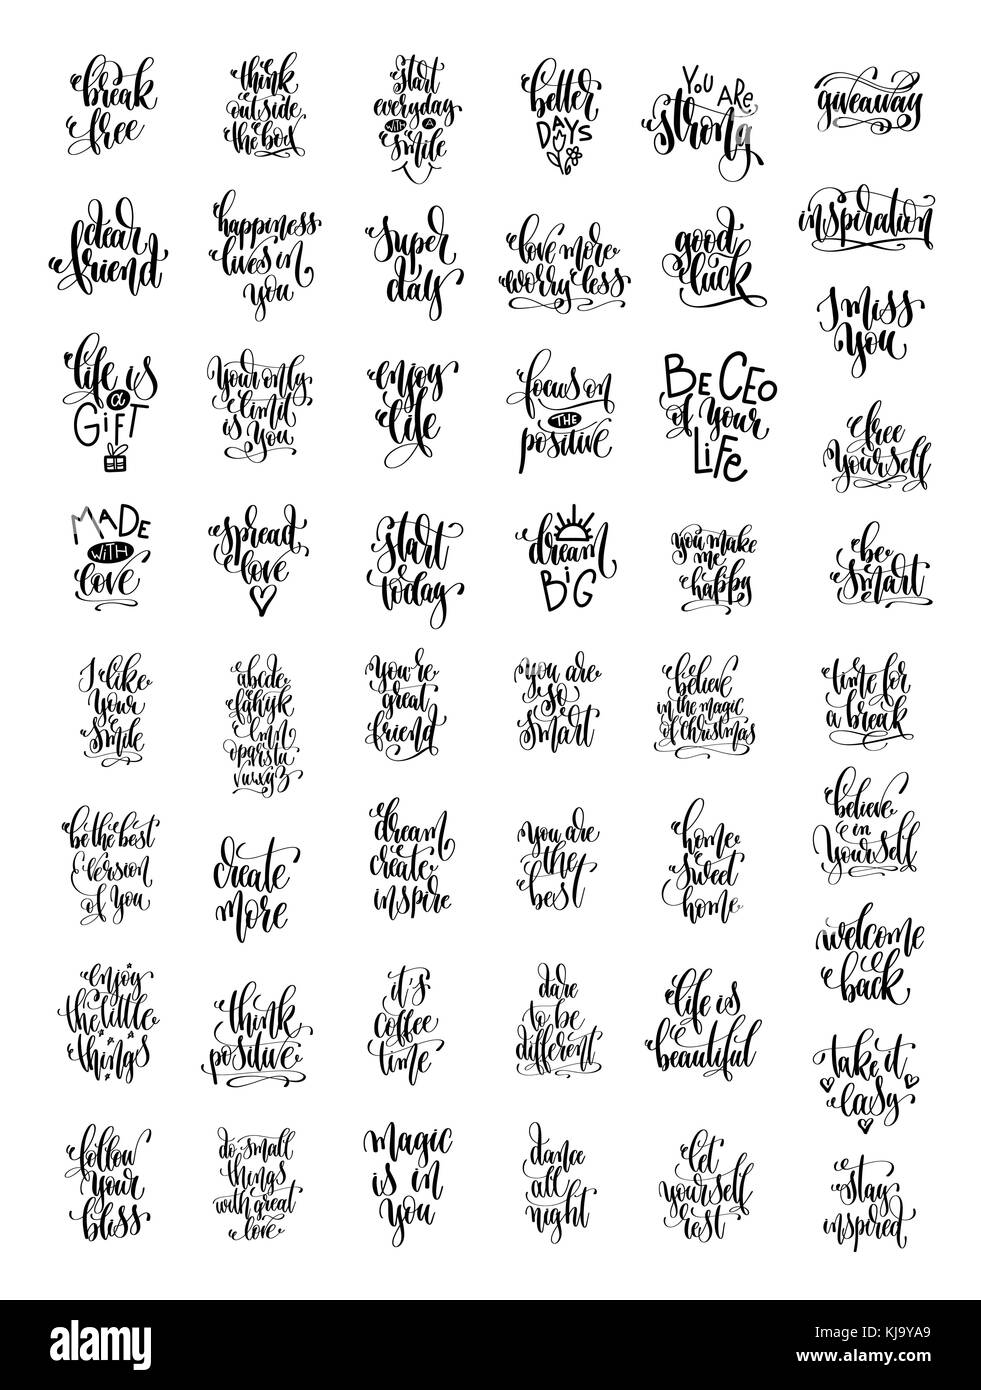 break
free
think
outside
the box
start
everyday
WITH A
smile
better
DAYS
YOU ARE
strong
giveaway
dear
friend
happiness
lives in
you
super
day
love more
worry less
good
luck
inspiration
I miss
you
life is
a
GIFT
Your only
limit
is you
enjoy
life
focus on
THE
positive
BE CEO
of your
LIFE
free
yourself
MADE
WITH
love
spread
love
start
today
dream
BIG
you make
me
happy
be
smart
I like
your
smile
abcde
fghijk
lmn
opqrstu
vwxyz
you're
great
friend
you are
so
smart
believe
in the magic
of christmas
time for
a break
be the best
version
of you
create
more
dream
create
inspire
you are
the
best
home
sweet
home
believe
in
yourself
enjoy
the little
things
think
positive
it's
coffee
time
dare
to be
different
life is
beautiful
welcome
back
take it
easy
follow
your
bliss
do small
things
with great
love
magic
is in
you
dance
all
night
let
yourself
rest
stay
inspired
alamy stock photo
KJ9YA9
www.alamy.com